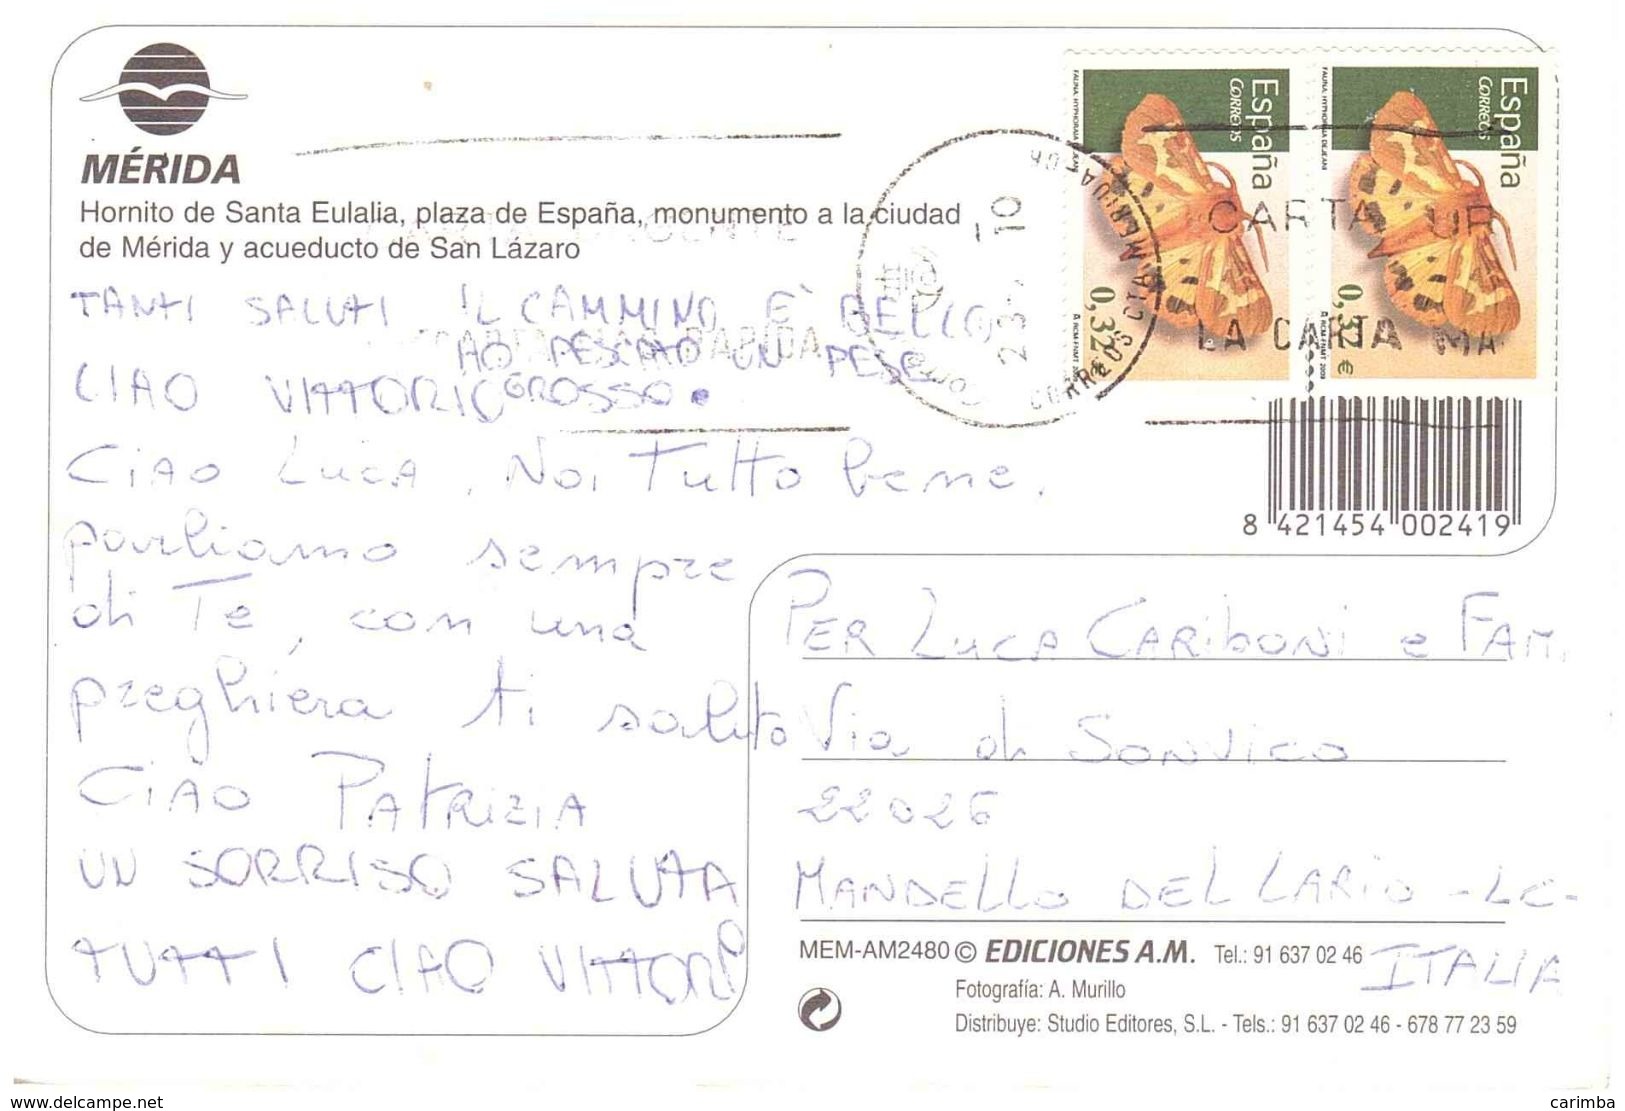 MÉRIDA
Hornito de Santa Eulalia, plaza de España, monumento a la ciudad
de Mérida y acueducto de San Lázaro
TANTI SALUTI IL CAMMINO E' BELLO
HO PESCATO UN PESE
CIAO VITTORIO GROSSO.
CIAO LUCA, Noi TuTTo bene,
parliamo sempre
di Te, con una
preghiera ti saluto
CIAO PATRIZIA
UN SORRISO SALUTA
TUTTI CIAO VITTORI
España
CORREOS
FAUNA. HYPHORAIA DEJEANI
0,32 €
España
CORREOS
FAUNA. HYPHORAIA DEJEANI
0,32 €
CARTA UR
LA CARTA MA
CORREOS CTA MERIDA
10
8 421454 002419
PER LUCA CARIBONI e FAM.
Via di SONVICO
22026
MANDELLO DEL LARIO - LC -
ITALIA
MEM-AM2480 © EDICIONES A.M. Tel.: 91 637 02 46
Fotografía: A. Murillo
Distribuye: Studio Editores, S.L. - Tels.: 91 637 02 46 - 678 77 23 59
www.delcampe.net
carimba